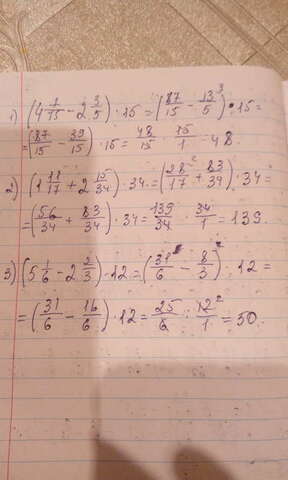 1) (4 7/15 - 2 3/5) · 15 = (87/15 - 13/5 ³) · 15 =
= (87/15 - 39/15) · 15 = 48/15 · 15/1 = 48
2) (1 11/17 + 2 15/34) · 34 = (28/17 ² + 83/34) · 34 =
= (56/34 + 83/34) · 34 = 139/34 · 34/1 = 139.
3) (5 1/6 - 2 2/3) · 12 = (31/6 - 8/3 ²) · 12 =
= (31/6 - 16/6) · 12 = 25/6 · 12 ²/1 = 50.